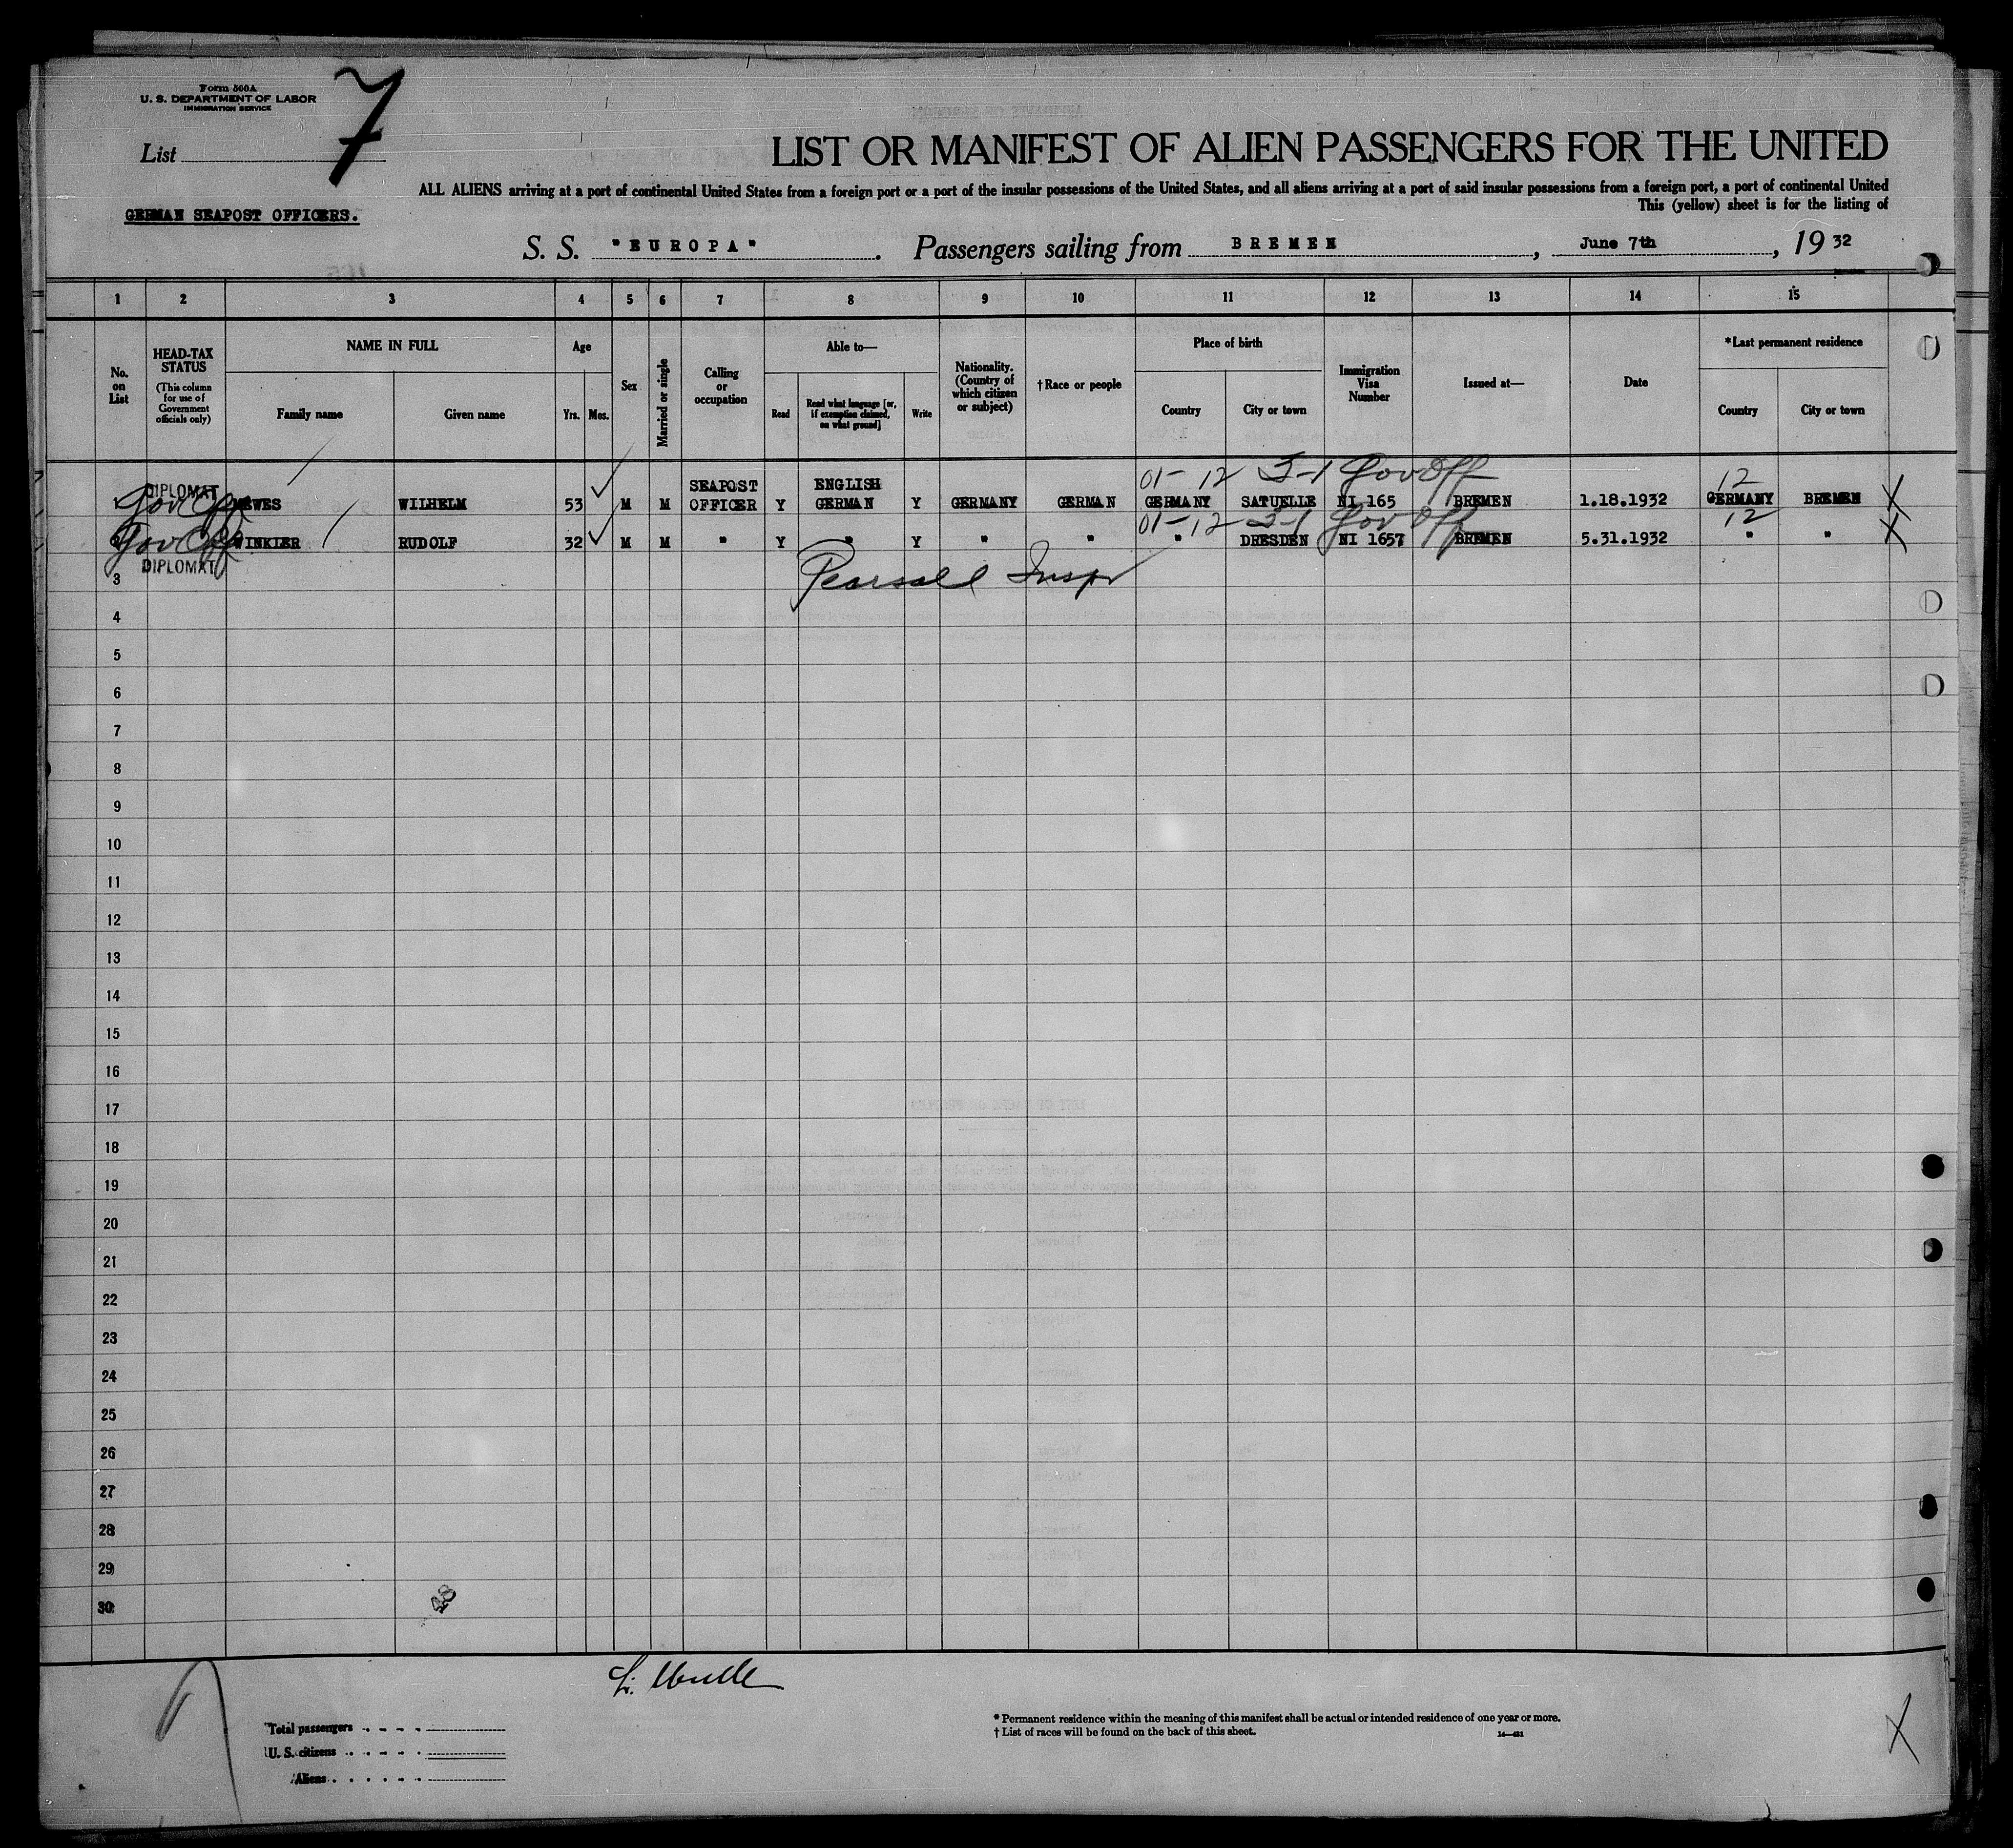 Form 500A
U. S. DEPARTMENT OF LABOR
IMMIGRATION SERVICE
List 7
LIST OR MANIFEST OF ALIEN PASSENGERS FOR THE UNITED
ALL ALIENS arriving at a port of continental United States from a foreign port or a port of the insular possessions of the United States, and all aliens arriving at a port of said insular possessions from a foreign port, a port of continental United
This (yellow) sheet is for the listing of
GERMAN SEAPOST OFFICERS.
S. S. "EUROPA". Passengers sailing from BREMEN, June 7th, 1932
1 2 3 4 5 6 7 8 9 10 11 12 13 14 15
No. on List
HEAD-TAX STATUS
(This column for use of Government officials only)
NAME IN FULL
Family name Given name
Age
Yrs. Mos.
Sex
Married or single
Calling or occupation
Able to—
Read
Read what language [or, if exemption claimed, on what ground]
Write
Nationality. (Country of which citizen or subject)
†Race or people
Place of birth
Country City or town
Immigration Visa Number
Issued at—
Date
*Last permanent residence
Country City or town
01-12 3-1 Gov Off 12
DIPLOMAT SEAPOST ENGLISH
1 Gov Off MEWES WILHELM 53 M M OFFICER Y GERMAN Y GERMANY GERMAN GERMANY SATUELLE NI 165 BREMEN 1.18.1932 GERMANY BREMEN X
01-12 3-1 Gov Off 12
2 Gov Off WINKLER RUDOLF 32 M M " Y " Y " " " DRESDEN NI 1657 BREMEN 5.31.1932 " " X
DIPLOMAT
3 Pearsall Inspr
4
5
6
7
8
9
10
11
12
13
14
15
16
17
18
19
20
21
22
23
24
25
26
27
28
29
30
Total passengers
U. S. citizens
Aliens
* Permanent residence within the meaning of this manifest shall be actual or intended residence of one year or more.
† List of races will be found on the back of this sheet.
14—481
X